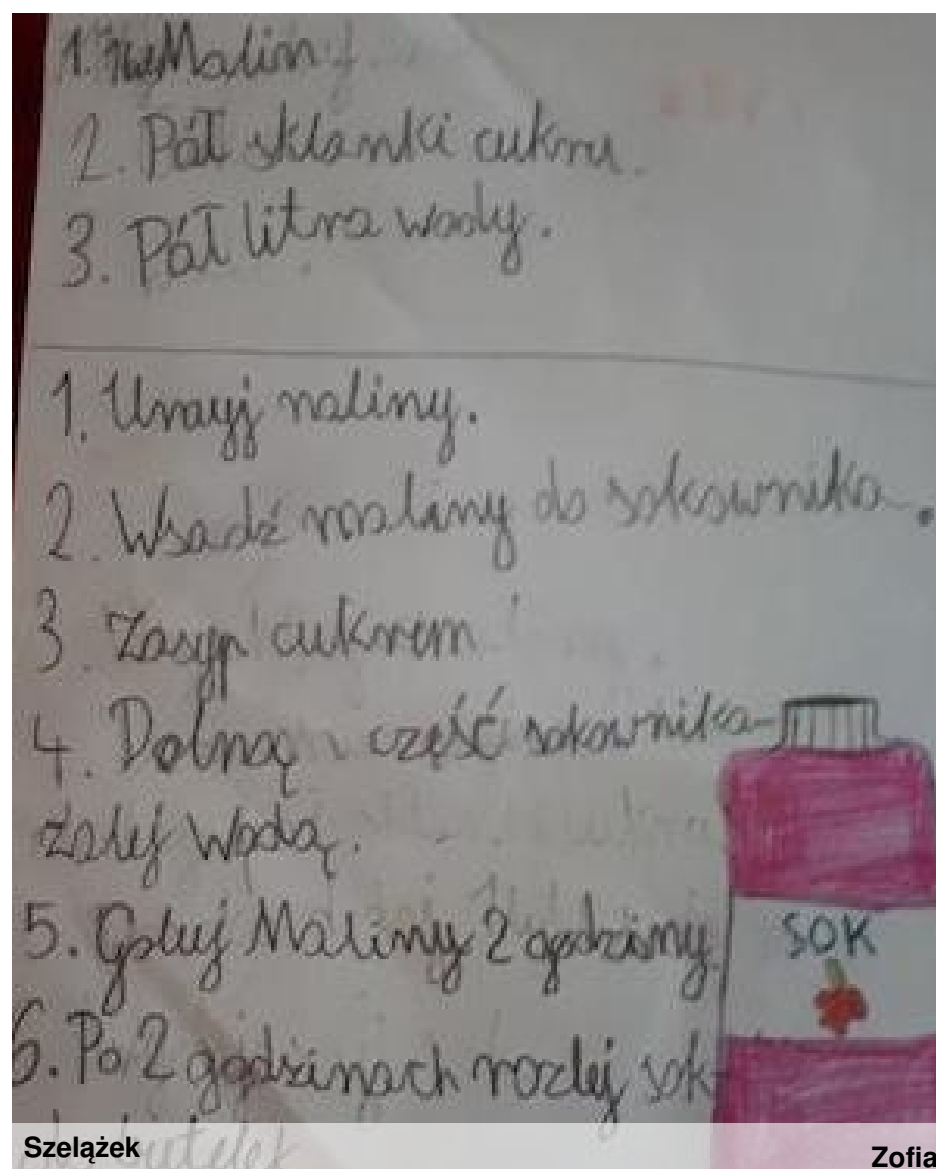 1. Maliny.
2. Pół szklanki cukru.
3. Pół litra wody.
1. Umyj maliny.
2. Wsadź maliny do sokownika.
3. Zasyp cukrem
4. Dolną część sokownika
zalej wodą.
5. Gotuj Maliny 2 godziny.
6. Po 2 godzinach rozlej sok
do butelej
SOK
Szelążek
Zofia